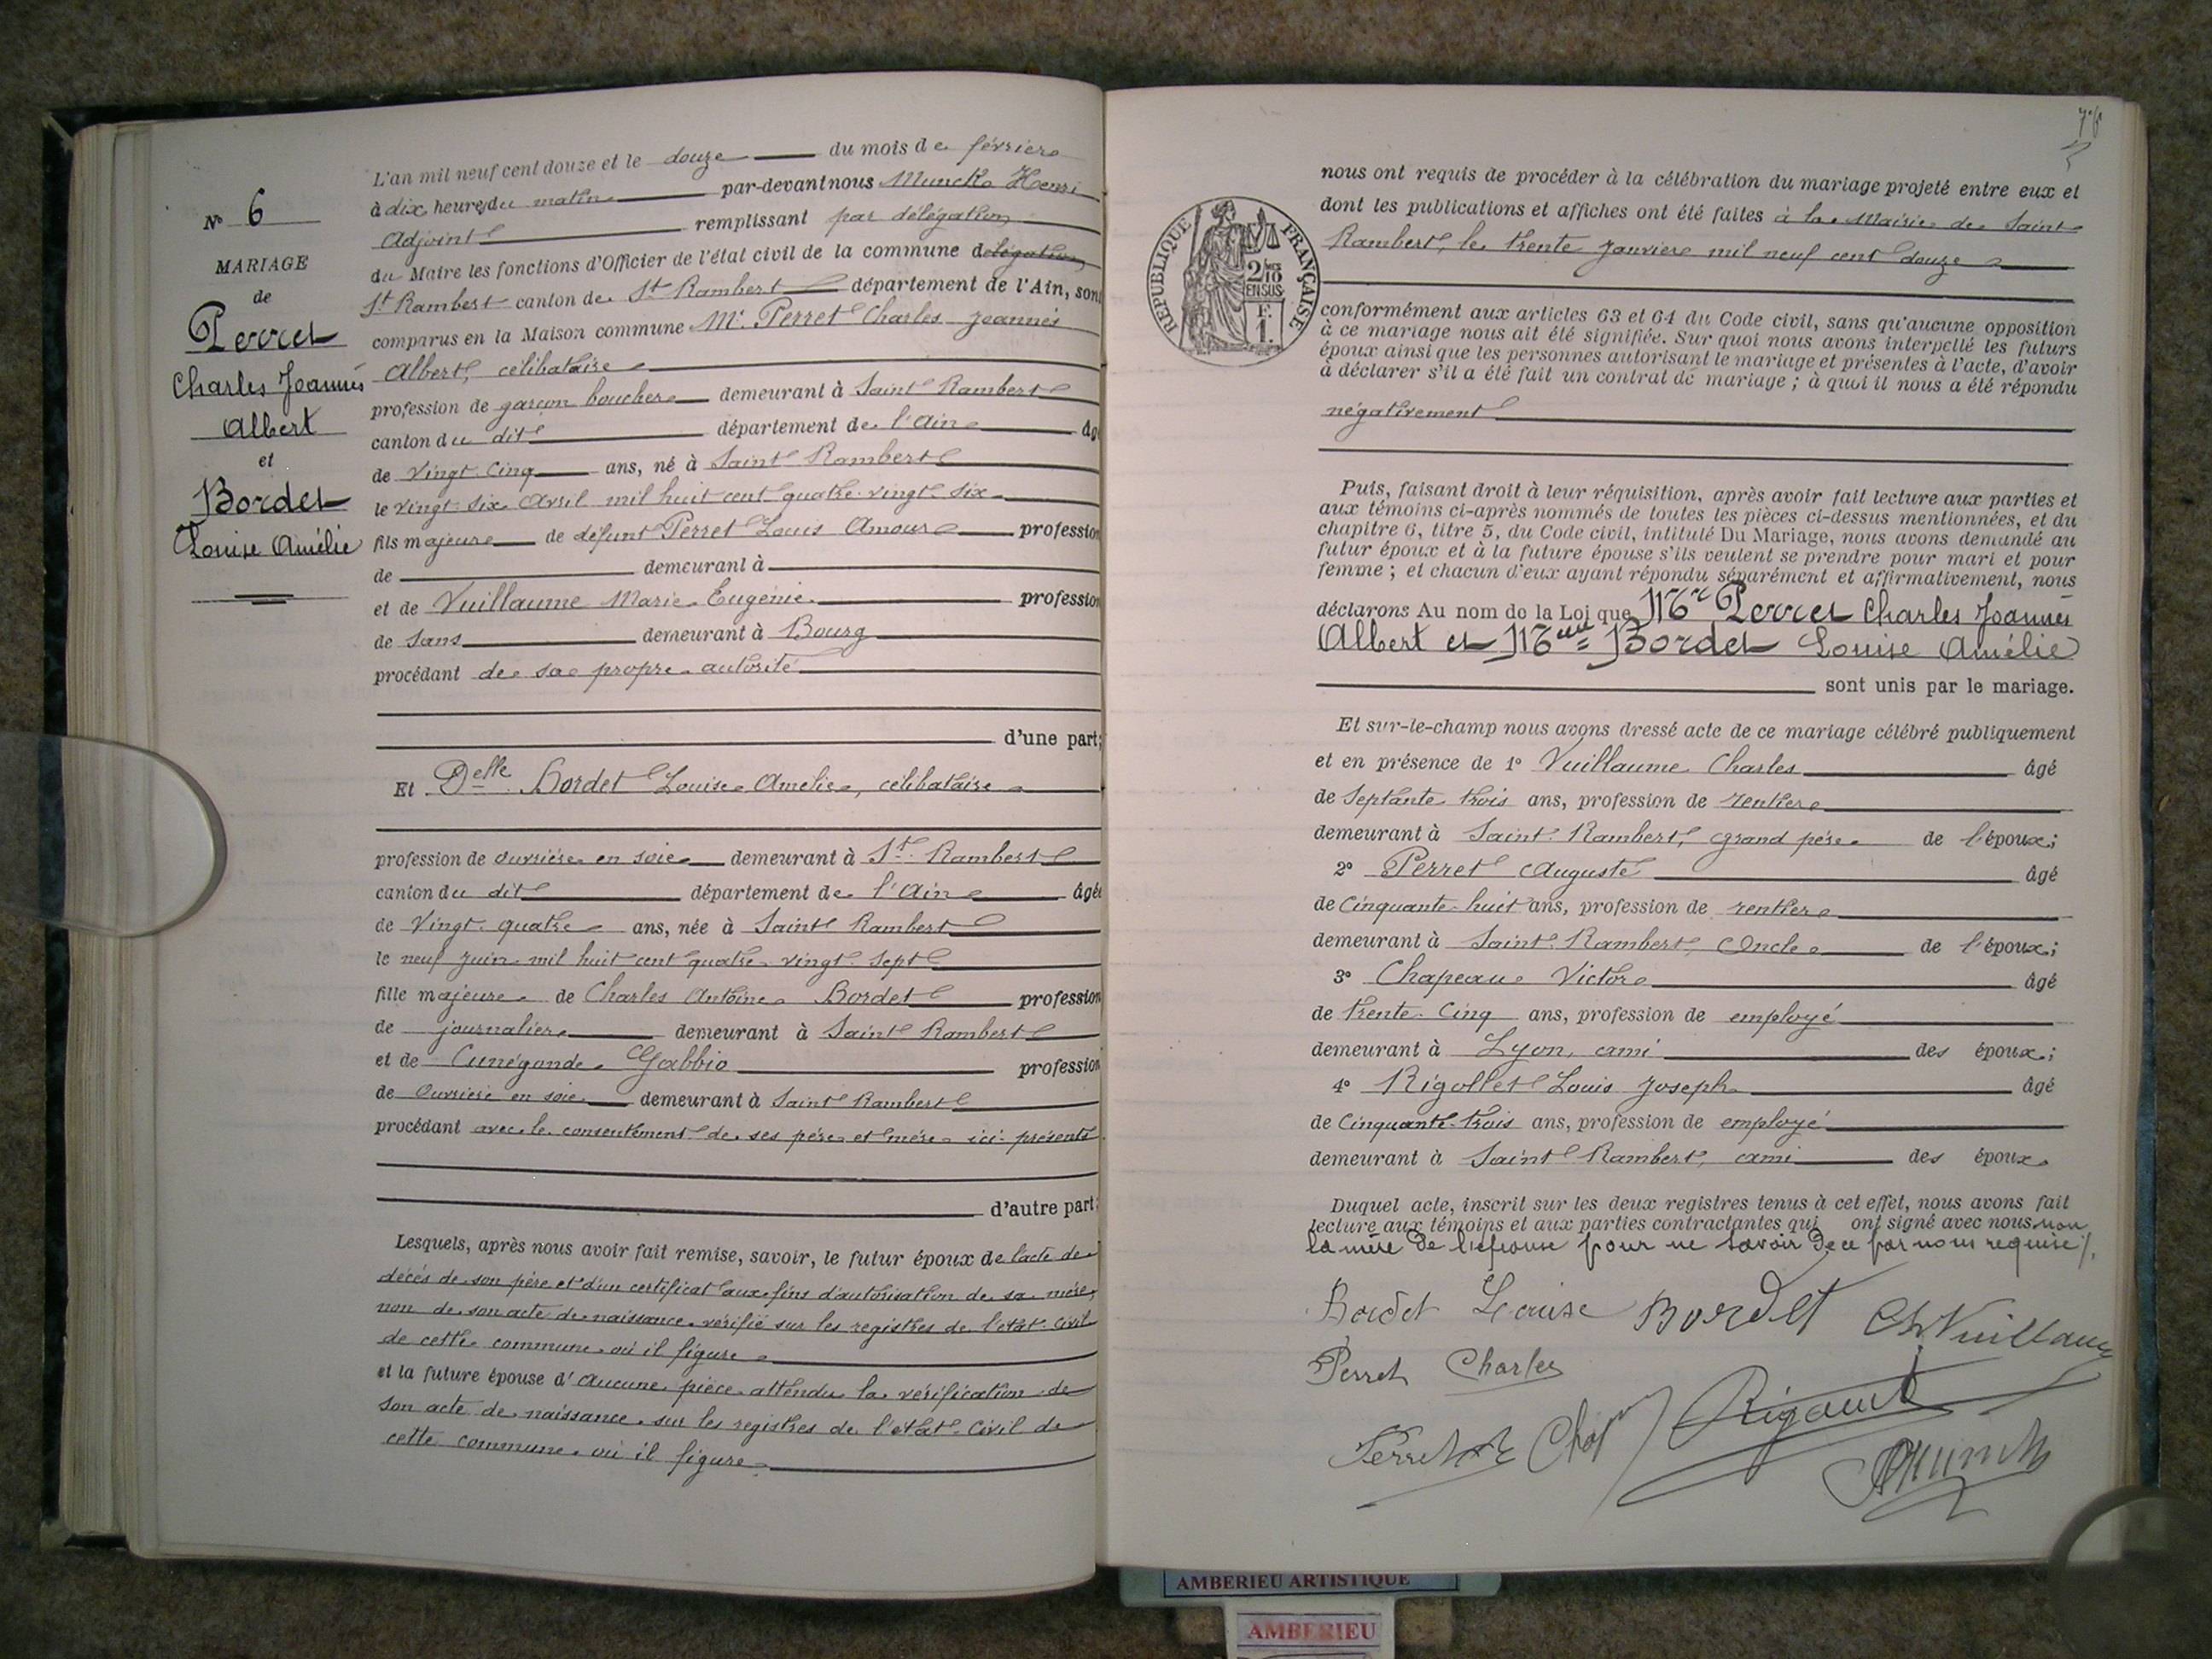 N° 6
MARIAGE
de
Perret
Charles Joannès
Albert
et
Bordet
Louise Amélie
L'an mil neuf cent douze et le douze du mois de février
à dix heures du matin par-devant nous Munck Henri
Adjoint remplissant par délégation
du Maire les fonctions d'Officier de l'état civil de la commune délégation
St Rambert canton de St Rambert département de l'Ain, sont
comparus en la Maison commune Mr Perret Charles Joannès
Albert, célibataire
profession de garçon boucher demeurant à Saint Rambert
canton du dit département de l'Ain âgé
de vingt cinq ans, né à Saint Rambert
le vingt six Avril mil huit cent quatre vingt six
fils majeur de défunt Perret Louis Amour profession
de demeurant à
et de Vuillaume Marie Eugénie profession
de sans demeurant à Bourg
procédant de sa propre autorité
d'une part;
Et Delle Bordet Louise Amélie, célibataire
profession de ouvrière en soie demeurant à St Rambert
canton du dit département de l'Ain âgée
de vingt quatre ans, née à Saint Rambert
le neuf juin mil huit cent quatre vingt sept
fille majeure de Charles Antoine Bordet profession
de journalier demeurant à Saint Rambert
et de Cunégonde Gabbio profession
de ouvrière en soie demeurant à Saint Rambert
procédant avec le consentement de ses père et mère ici présents
d'autre part;
Lesquels, après nous avoir fait remise, savoir, le futur époux de l'acte de
décès de son père et d'un certificat aux fins d'autorisation de sa mère,
non de son acte de naissance vérifié sur les registres de l'état civil
de cette commune où il figure
et la future épouse d'aucune pièce attendu la vérification de
son acte de naissance sur les registres de l'état civil de
cette commune où il figure
RÉPUBLIQUE FRANÇAISE
2/10 EN SUS
F. 1.
nous ont requis de procéder à la célébration du mariage projeté entre eux et
dont les publications et affiches ont été faites à la Mairie de Saint
Rambert, le trente janvier mil neuf cent douze
conformément aux articles 63 et 64 du Code civil, sans qu'aucune opposition
à ce mariage nous ait été signifiée. Sur quoi nous avons interpellé les futurs
époux ainsi que les personnes autorisant le mariage et présentes à l'acte, d'avoir
à déclarer s'il a été fait un contrat de mariage ; à quoi il nous a été répondu
négativement
Puis, faisant droit à leur réquisition, après avoir fait lecture aux parties et
aux témoins ci-après nommés de toutes les pièces ci-dessus mentionnées, et du
chapitre 6, titre 5, du Code civil, intitulé Du Mariage, nous avons demandé au
futur époux et à la future épouse s'ils veulent se prendre pour mari et pour
femme ; et chacun d'eux ayant répondu séparément et affirmativement, nous
déclarons Au nom de la Loi que Mr Perret Charles Joannès
Albert et Melle Bordet Louise Amélie
sont unis par le mariage.
Et sur-le-champ nous avons dressé acte de ce mariage célébré publiquement
et en présence de 1° Vuillaume Charles âgé
de septante trois ans, profession de rentier
demeurant à Saint Rambert, grand père de l'époux;
2° Perret Auguste âgé
de cinquante huit ans, profession de rentier
demeurant à Saint Rambert, oncle de l'époux;
3° Chapeau Victor âgé
de trente cinq ans, profession de employé
demeurant à Lyon, ami des époux;
4° Rigollet Louis Joseph âgé
de cinquante trois ans, profession de employé
demeurant à Saint Rambert, ami des époux
Duquel acte, inscrit sur les deux registres tenus à cet effet, nous avons fait
lecture aux témoins et aux parties contractantes qui ont signé avec nous non
la mère de l'épouse pour ne savoir de ce par nous requise
Bordet Louise Bordet Ch. Vuillaume
Perret Charles
Perret
AMBERIEU ARTISTIQUE
AMBERIEU